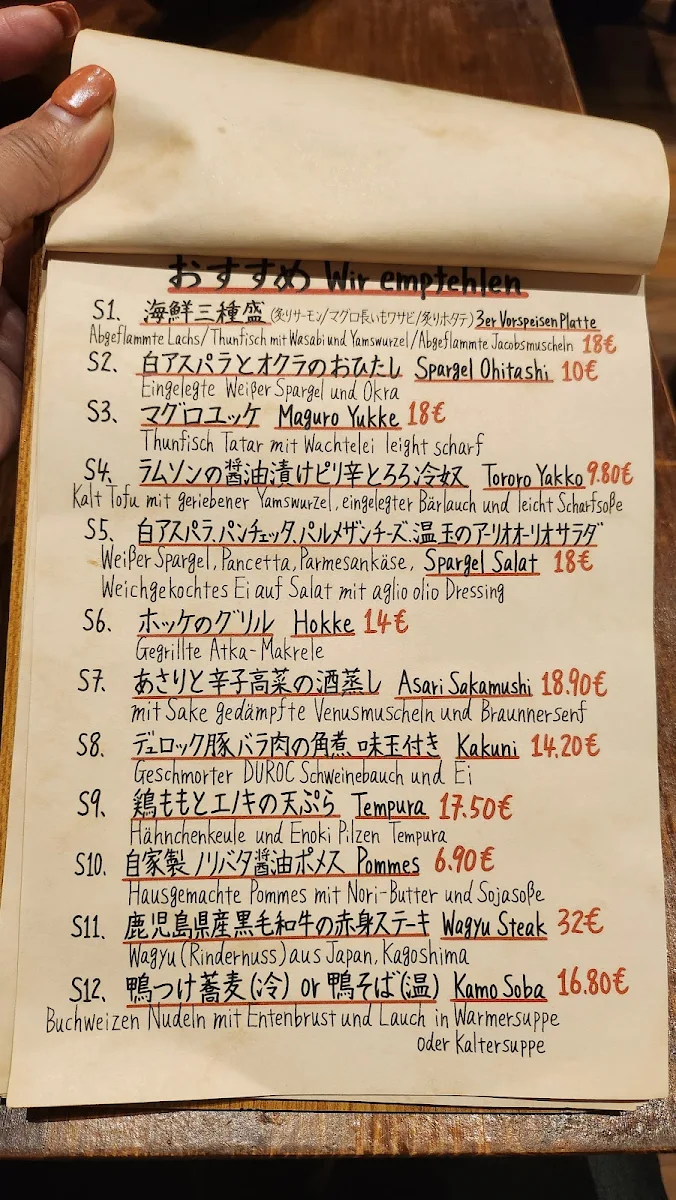 おすすめ Wir empfehlen
S1. 海鮮三種盛 (炙りサーモン/マグロ長いもワサビ/炙りホタテ) 3er Vorspeisen Platte
Abgeflammte Lachs/Thunfisch mit Wasabi und Yamswurzel/Abgeflammte Jacobsmuscheln 18€
S2. 白アスパラとオクラのおひたし Spargel Ohitashi 10€
Eingelegte Weißer Spargel und Okra
S3. マグロユッケ Maguro Yukke 18€
Thunfisch Tatar mit Wachtelei leight scharf
S4. ラムソンの醤油漬けピリ辛とろろ冷奴 Tororo Yakko 9.80€
Kalt Tofu mit geriebener Yamswurzel, eingelegter Bärlauch und leicht Scharfsoße
S5. 白アスパラ、パンチェッタ、パルメザンチーズ、温玉のアーリオオーリオサラダ
Weißer Spargel, Pancetta, Parmesankäse, Spargel Salat 18€
Weichgekochtes Ei auf Salat mit aglio olio Dressing
S6. ホッケのグリル Hokke 14€
Gegrillte Atka-Makrele
S7. あさりと辛子高菜の酒蒸し Asari Sakamushi 18.90€
mit Sake gedämpfte Venusmuscheln und Braunnersenf
S8. デュロック豚バラ肉の角煮、味玉付き Kakuni 14.20€
Geschmorter DUROC Schweinebauch und Ei
S9. 鶏ももとエノキの天ぷら Tempura 17.50€
Hähnchenkeule und Enoki Pilzen Tempura
S10. 自家製ノリバタ醤油ポメス Pommes 6.90€
Hausgemachte Pommes mit Nori-Butter und Sojasoße
S11. 鹿児島県産黒毛和牛の赤身ステーキ Wagyu Steak 32€
Wagyu (Rindernuss) aus Japan, Kagoshima
S12. 鴨つけ蕎麦(冷) or 鴨そば(温) Kamo Soba 16.80€
Buchweizen Nudeln mit Entenbrust und Lauch in Warmersuppe
oder Kaltersuppe